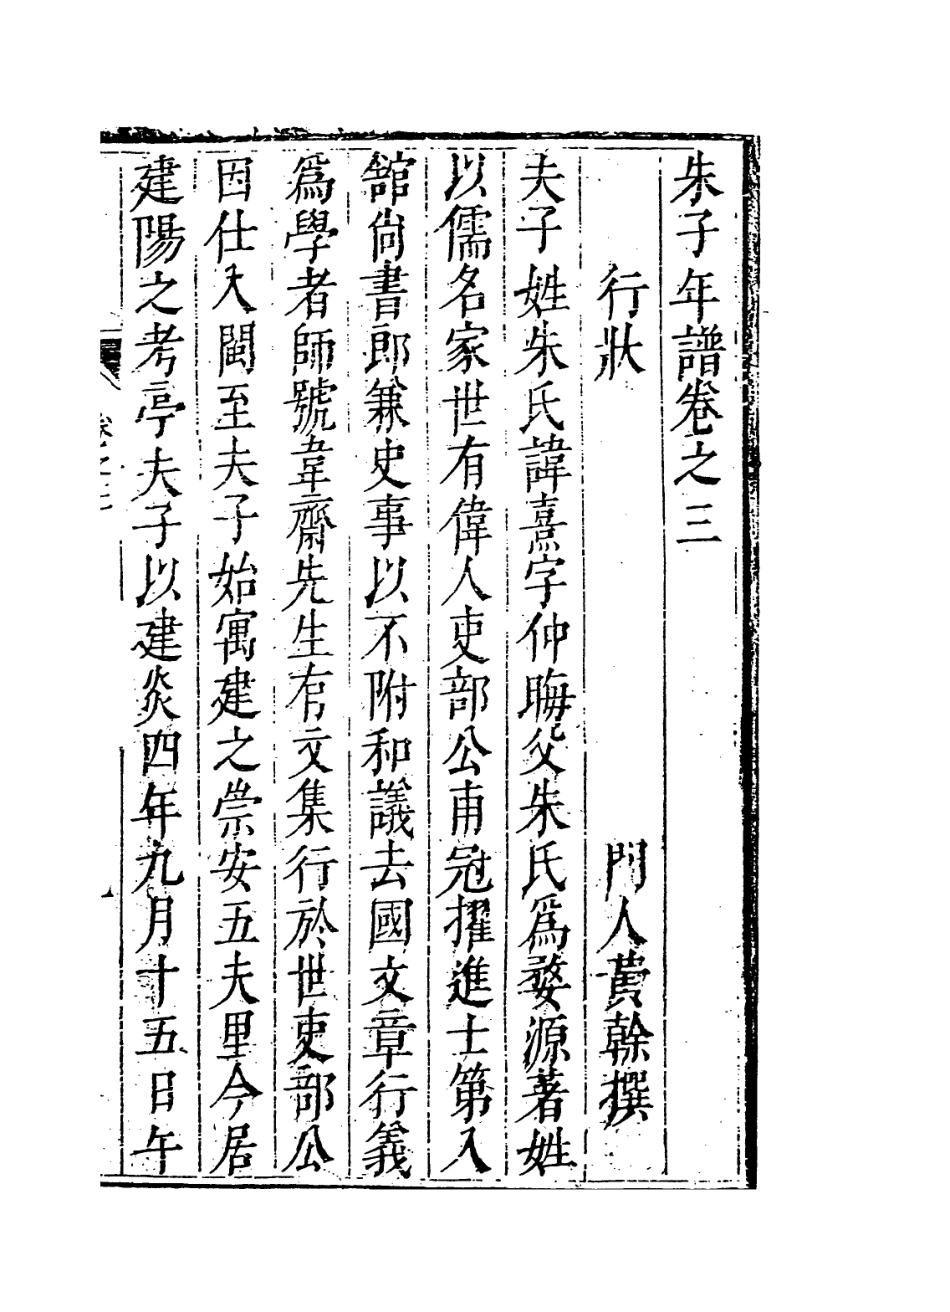 朱子年譜卷之三
行狀　門人黃榦撰
夫子姓朱氏諱熹字仲晦父朱氏爲婺源著姓
以儒名家世有偉人吏部公甫冠擢進士第入
舘尙書郎兼史事以不附和議去國文章行義
爲學者師號韋齋先生有文集行於世吏部公
因仕入閩至夫子始寓建之崇安五夫里今居
建陽之考亭夫子以建炎四年九月十五日午